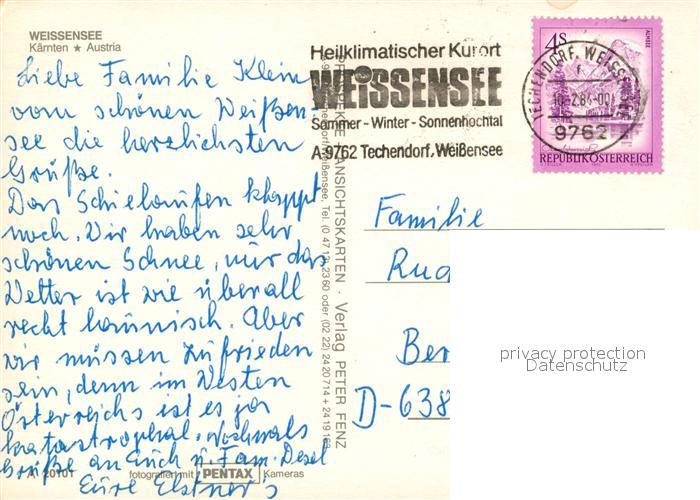 WEISSENSEE
Kärnten ★ Austria
Liebe Familie Klein
vom schönen Weißen-
see die herzlichsten
Grüße.
Das Schielaufen klappt
noch. Wir haben sehr
schönen Schnee, nur das
Wetter ist wie überall
recht launisch. Aber
wir müssen zufrieden
sein, denn im Westen
Österreichs ist es ja
katastrophal. Nochmals
Grüße an Euch u. Fam. Desel
Eure Elstner's
fotografiert mit PENTAX Kameras
ANSICHTSKARTEN · Verlag PETER FENZ
Weißensee, Tel. (0 47 13) 23 60 oder (02 22) 24 20 714 + 24 19
Heilklimatischer Kurort
WEISSENSEE
Sommer - Winter - Sonnenhochtal
A-9762 Techendorf, Weißensee
4s
ALMSEE
REPUBLIK ÖSTERREICH
TECHENDORF, WEISSENSEE
9762
Familie
Rud
Ber
D-638
privacy protection
Datenschutz